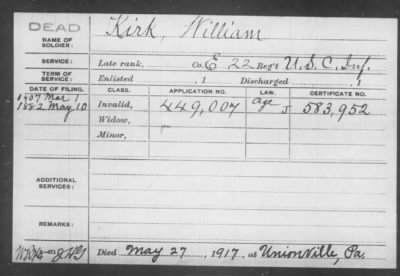 DEAD
NAME OF SOLDIER: Kirk, William
SERVICE: Late rank, Co. E 22 Reg't U.S.C. Inf.
TERM OF SERVICE: Enlisted , 1 Discharged , 1
DATE OF FILING. CLASS. APPLICATION NO. LAW. CERTIFICATE NO.
1907 Mar 1
1882 May 10 Invalid, 449,007 Age J 583,952
Widow,
Minor,
ADDITIONAL SERVICES:
REMARKS:
Died May 27, 1917, at Unionville, Pa.